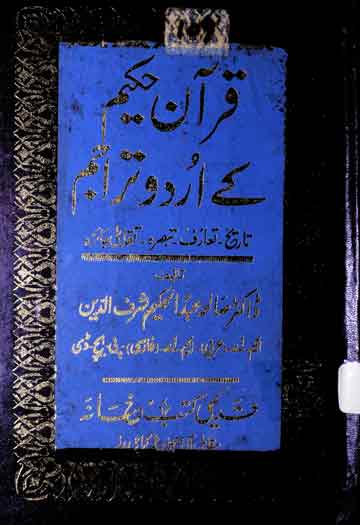 قرآن حکیم
کے اردو تراجم
تاریخ۔ تعارف۔ تبصرہ۔ تقابلی جائزہ
تالیف
ڈاکٹر صالحہ عبدالحکیم شرف الدین
ایم۔اے۔ عربی۔ ایم۔اے۔ (فارسی)، پی، ایچ۔ ڈی
قدیمی کتب خانہ